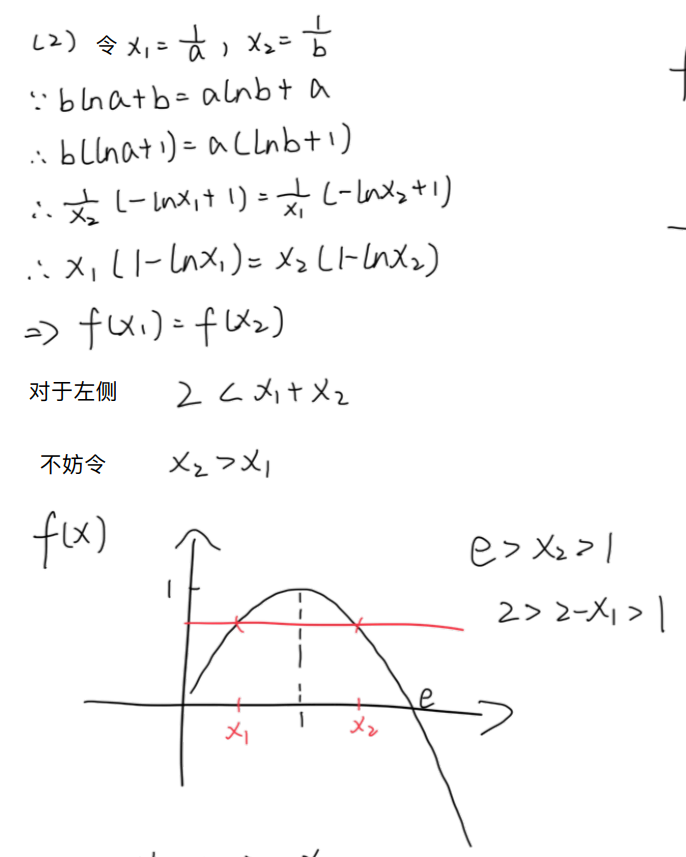 (2) 令 x₁ = 1/a , x₂ = 1/b
∵ blna+b = alnb+ a
∴ b(lna+1) = a(lnb+1)
∴ 1/x₂ (-lnx₁+1) = 1/x₁ (-lnx₂+1)
∴ x₁(1-lnx₁) = x₂(1-lnx₂)
=> f(x₁) = f(x₂)
对于左侧 2 < x₁+x₂
不妨令 x₂ > x₁
f(x)
e > x₂ > 1
2 > 2-x₁ > 1
1
e
x₁ 1 x₂